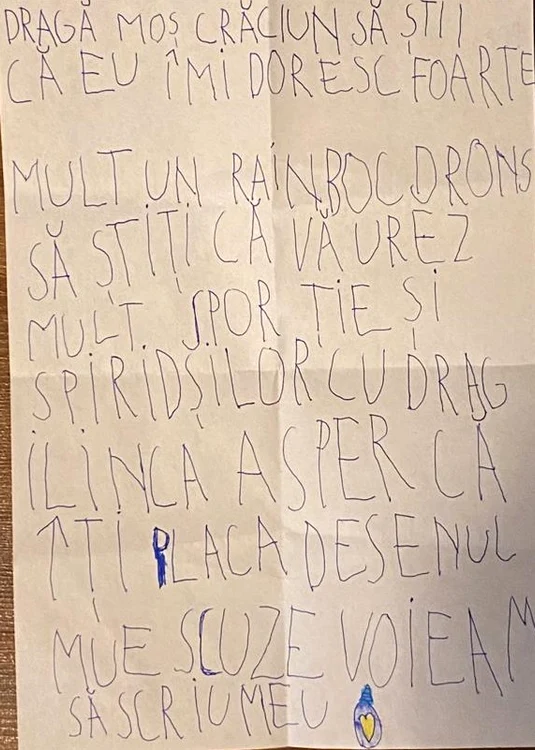 DRAGĂ MOȘ CRĂCIUN SĂ ȘTII
CĂ EU ÎMI DORESC FOARTE
MULT UN RAINBOC DRONS
SĂ ȘTIȚI CĂ VĂ UREZ
MULT SPOR ȚIE ȘI
SPIRIDȘILOR CU DRAG
ILINCA ASPER CĂ
ÎȚI PLACA DESENUL
MUE SCUZE VOIEAM
SĂ SCRIU MEU